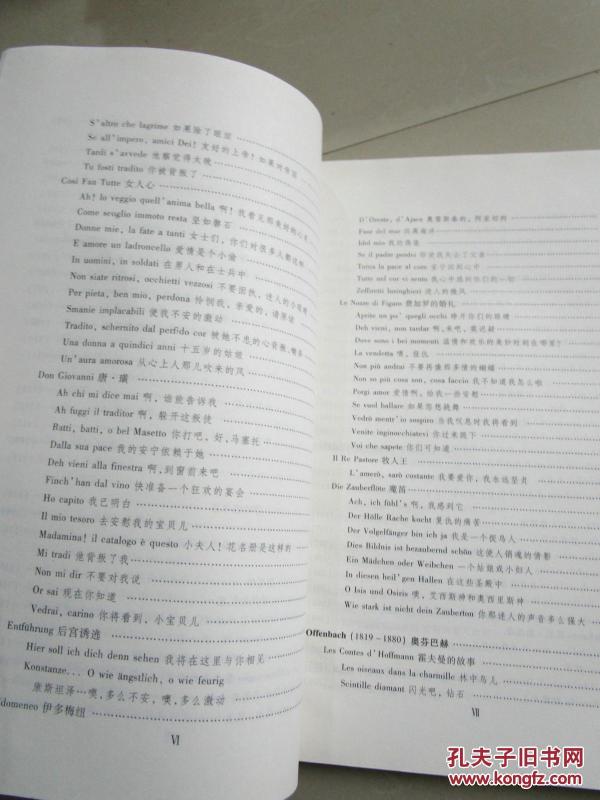 S'altro che lagrime 如果除了眼泪
Se all'impero, amici Dei! 友好的上帝! 如果对帝国
Tardi s'avvede 他察觉得太晚
Tu fosti tradito 你被背叛了
Così Fan Tutte 女人心
Ah! lo veggio quell'anima bella 啊! 我看见那美好的心灵
Come scoglio immoto resta 坚如磐石
Donne mie, la fate a tanti 女士们, 你们对很多人都这样
E amore un ladroncello 爱情是个小偷
In uomini, in soldati 在男人和在士兵中
Non siate ritrosi, occhietti vezzosi 不要固执, 迷人的小眼睛
Per pieta, ben mio, perdona 怜悯我, 亲爱的, 请原谅
Smanie implacabili 使我不安的激动
Tradito, schernito dal perfido cor 被她不忠的心背叛、嘲弄
Una donna a quindici anni 十五岁的姑娘
Un'aura amorosa 从心上人那儿吹来的风
Don Giovanni 唐·璜
Ah chi mi dice mai 啊, 谁能告诉我
Ah fuggi il traditor 啊, 躲开这叛徒
Batti, batti, o bel Masetto 你打吧, 好, 马塞托
Dalla sua pace 我的安宁依赖于她
Deh vieni alla finestra 啊, 到窗前来吧
Finch'han dal vino 快准备一个狂欢的宴会
Ho capito 我已明白
Il mio tesoro 去安慰我的宝贝儿
Madamina! il catalogo è questo 小夫人! 花名册是这样的
Mi tradì 他背叛了我
Non mi dir 不要对我说
Or sai 现在你知道
Vedrai, carino 你将看到, 小宝贝儿
Entführung 后宫诱逃
Hier soll ich dich denn sehen 我将在这里与你相见
Konstanze... O wie ängstlich, o wie feurig
康斯坦泽…噢, 多么不安, 噢, 多么激动
domeneo 伊多梅纽
VI
D'Oreste, d'Ajace 奥雷斯泰的, 阿家切的
Fuor del mar 远离海洋
Idol mio 我的偶像
Se il padre perdei 即使我失去了父亲
Torna la pace al core 安宁回到心中
Tutte nel cor vi sento 我心中感到你们的一切
Zeffiretti lusinghieri 迷人的微风
Le Nozze di Figaro 费加罗的婚礼
Aprite un po' quegli occhi 睁开你们的眼睛
Deh vieni, non tardar 啊, 来吧, 莫迟疑
Dove sono i bei momenti 温情和欢乐的美妙时刻在哪里?
La vendetta 噢, 复仇
Non più andrai 不要再像那多情的蝴蝶
Non so più cosa son, cosa faccio 我不知道我怎么啦
Porgi amor 爱情啊, 给我一些安慰
Se vuol ballare 如果您想跳舞
Vedrò mentr'io sospiro 当我叹息时我将看到
Venite inginocchiatevi 你过来跪下
Voi che sapete 你们可知道
Il Re Pastore 牧人王
L'amerò, sarò costante 我要爱你, 我永远坚贞
Die Zauberflöte 魔笛
Ach, ich fühl's 啊, 我感到它
Der Hölle Rache kocht 复仇的痛苦
Der Volgelfänger bin ich ja 我是一个捉鸟人
Dies Bildnis ist bezaubernd schön 这使人销魂的倩影
Ein Mädchen oder Weibchen 一个姑娘或小妇人
In diesen heil'gen Hallen 在这些圣殿中
O Isis und Osiris 噢, 艾西斯神和奥西里斯神
Wie stark ist nicht dein Zauberton 你那迷人的声音多么强大
Offenbach (1819-1880) 奥芬巴赫
Les Contes d'Hoffmann 霍夫曼的故事
Les oiseaux dans la charmille 林中鸟儿
Scintille diamant 闪光吧, 钻石
VII
孔夫子旧书网
www.kongfz.com